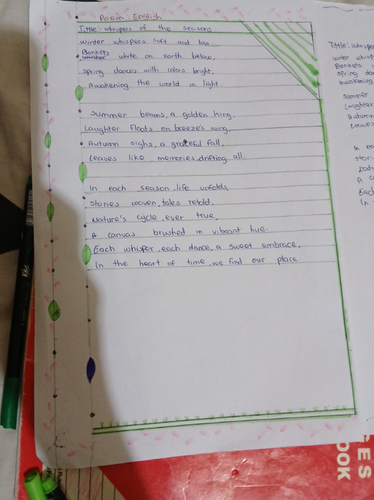 Poem: English
Title: whispers of the seasons
Winter whispers soft and low,
Blankets white on earth below,
Spring dances with colors bright,
Awakening the world in light.
Summer beams, a golden hing,
Laughter floats on breeze's wing,
Autumn sighs, a graceful fall,
Leaves like memories drifting all.
In each season, life unfolds,
stories woven, tales retold.
Nature's cycle, ever true,
A canvas brushed in vibrant hue.
Each whisper, each dance, a sweet embrace,
In the heart of time, we find our place
Title: whisp
Summer
Laughter
Autumn
Leaves
In e
stori
A c
Each
In
OOK